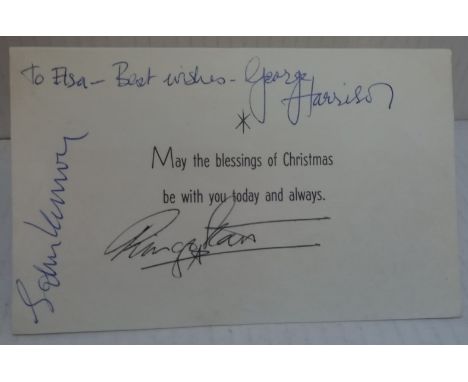 To Elsa - Best wishes - George Harrison
May the blessings of Christmas
be with you today and always.
Ringo Starr
John Lennon